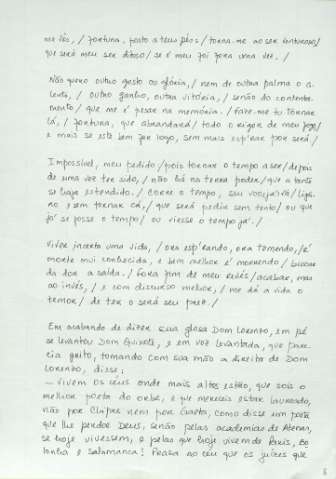 me vês, / Fortuna, posto a teus pés: / torna-me ao ser contínuo, /
que será meu ser ditoso / se é meu foi fora uma vez. /
Não quero outro gosto ou glória, / nem de outra palma o a-
lento, / outro ganho, outra vitória, / senão do contenta-
mento / que me é pesar na memória. / Faze-me tu tornar
lá, / Fortuna, que abrandará / todo o rigor de meu fogo, /
e mais se este bem for logo, sem mais esperar por será /
Impossível, meu pedido / pois tornar o tempo a ser / depois
de uma vez ter sido, / não há na terra poder / que a tanto
se haja estendido. / Corre o tempo, seu voo, já vá / ligei-
ro, e sem tornar cá, / que será pedir sem tento / ou que
já se posse o tempo / ou viesse o tempo já. /
Viver incerta uma vida, / ora esperando, ora temendo, / é
morte mui conhecida, e bem melhor é morrendo / buscar
da dor a saída. / Fora fim de meu revés / acabar, mas
ao invés, / e com discurso melhor, / me dá a vida o
temor / de ter o será seu prest. /
Em acabando de dizer sua glosa Dom Lorenzo, em pé
se levantou Dom Quixote, e em voz levantada, que pare-
cia grito, tomando com sua mão a direita de Dom
Lorenzo, disse:
— Vivem os céus onde mais altos estão, que sois o
melhor poeta do orbe, e que mereceis estar laureado,
não por Chipre nem por Gaeta, como disse um poeta
que lhe perdoe Deus, senão pelas academias de Atenas,
se hoje vivessem, e pelas que hoje vivem de Paris, Bo-
lonha e Salamanca! Praza ao céu que os juízes que